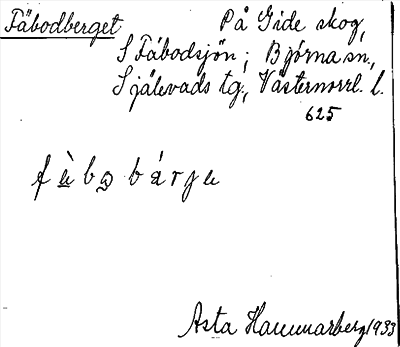 Fäbodberget På Gide skog,
S Fäbodsjön; Björna sn.,
Själevads tg., Västernorrl. l.
625
fὲbɷbárjɐ
Asta Hammarberg 1933